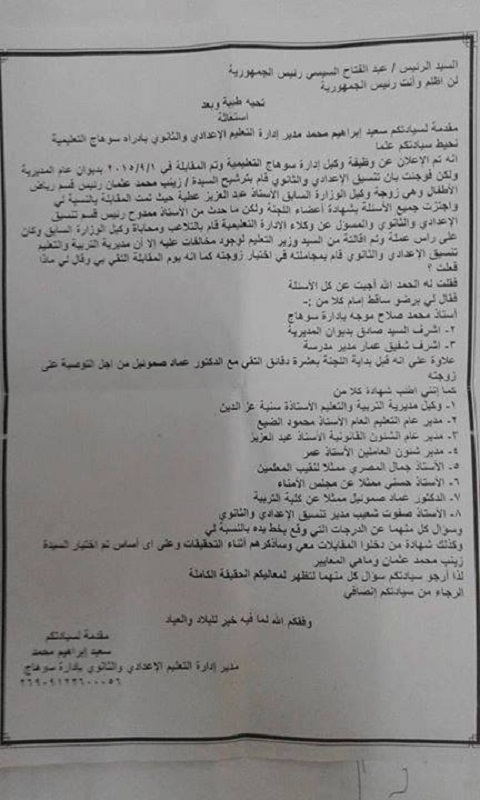 السيد الرئيس / عبد الفتاح السيسي رئيس الجمهورية
لن اظلم وأنت رئيس الجمهورية
تحيه طيبة وبعد
استغاثة
مقدمة لسيادتكم سعيد إبراهيم محمد مدير إدارة التعليم الإعدادي والثانوي بادراه سوهاج التعليمية
نحيط سيادتكم علما
انه تم الإعلان عن وظيفة وكيل إدارة سوهاج التعليمية وتم المقابلة في ٢٠١٥/٩/١ بديوان عام المديرية
ولكن فوجئت بان تنسيق الإعدادي والثانوي قام بترشيح السيدة / زينب محمد عثمان رئيس قسم رياض
الأطفال وهي زوجة وكيل الوزارة السابق الاستاذ عبد العزيز عطية حيث تمت المقابلة بالنسبة لي
واجتزت جميع الأسئلة بشهادة أعضاء اللجنة ولكن ما حدث من الأستاذ ممدوح رئيس قسم تنسيق
الإعدادي والثانوي والمسول عن وكلاء الإدارة التعليمية قام بالتلاعب ومحاباة وكيل الوزارة السابق وكان
على راس عملة وتم إقالتة من السيد وزير التعليم لوجود مخالفات عليه إلا أن مديرية التربية والتعليم
تنسيق الإعدادي والثانوي قام بمجاملته في اختيار زوجته كما انه يوم المقابلة التقي بي وقال لي ماذا
فعلت ؟
فقلت له الحمد الله أجبت عن كل الأسئلة
فقال لي برضو ساقط إمام كلا من :-
أستاذ محمد صلاح موجه بادارة سوهاج
٢- اشرف السيد صادق بديوان المديرية
٣- اشرف شفيق عمار مدير مدرسة
علاوة على انه قبل بداية اللجنة بعشرة دقائق التقي مع الدكتور عماد صموئيل من اجل التوصية على
زوجته
كما إنني اطلب شهادة كلا من
١- وكيل مديرية التربية والتعليم الأستاذة سنية عز الدين
٢- مدير عام التعليم العام الأستاذ محمود الضبع
٣- مدير عام الشئون القانونية الأستاذ عبد العزيز
٤- مدير شئون العاملين الأستاذ عمر
٥- الأستاذ جمال المصري ممثلا لنقيب المعلمين
٦- الأستاذ حسني ممثلا عن مجلس الأمناء
٧- الدكتور عماد صموئيل ممثلا عن كلية التربية
٨- الأستاذ صفوت شعيب مدير تنسيق الإعدادي والثانوي
وسوال كل منهما عن الدرجات التي وقع بخط يده بالنسبة لي
وكذلك شهادة من دخلوا المقابلات معي وسأذكرهم أثناء التحقيقات وعلى اى أساس تم اختيار السيدة
زينب محمد عثمان وماهي المعايير
لذا أرجو سيادتكم سؤال كل منهما لتظهر لمعاليكم الحقيقة الكاملة
الرجاء من سيادتكم إنصافي
وفقكم الله لما فيه خير للبلاد والعباد
مقدمة لسيادتكم
سعيد إبراهيم محمد
مدير إدارة التعليم الإعدادي والثانوي بإدارة سوهاج